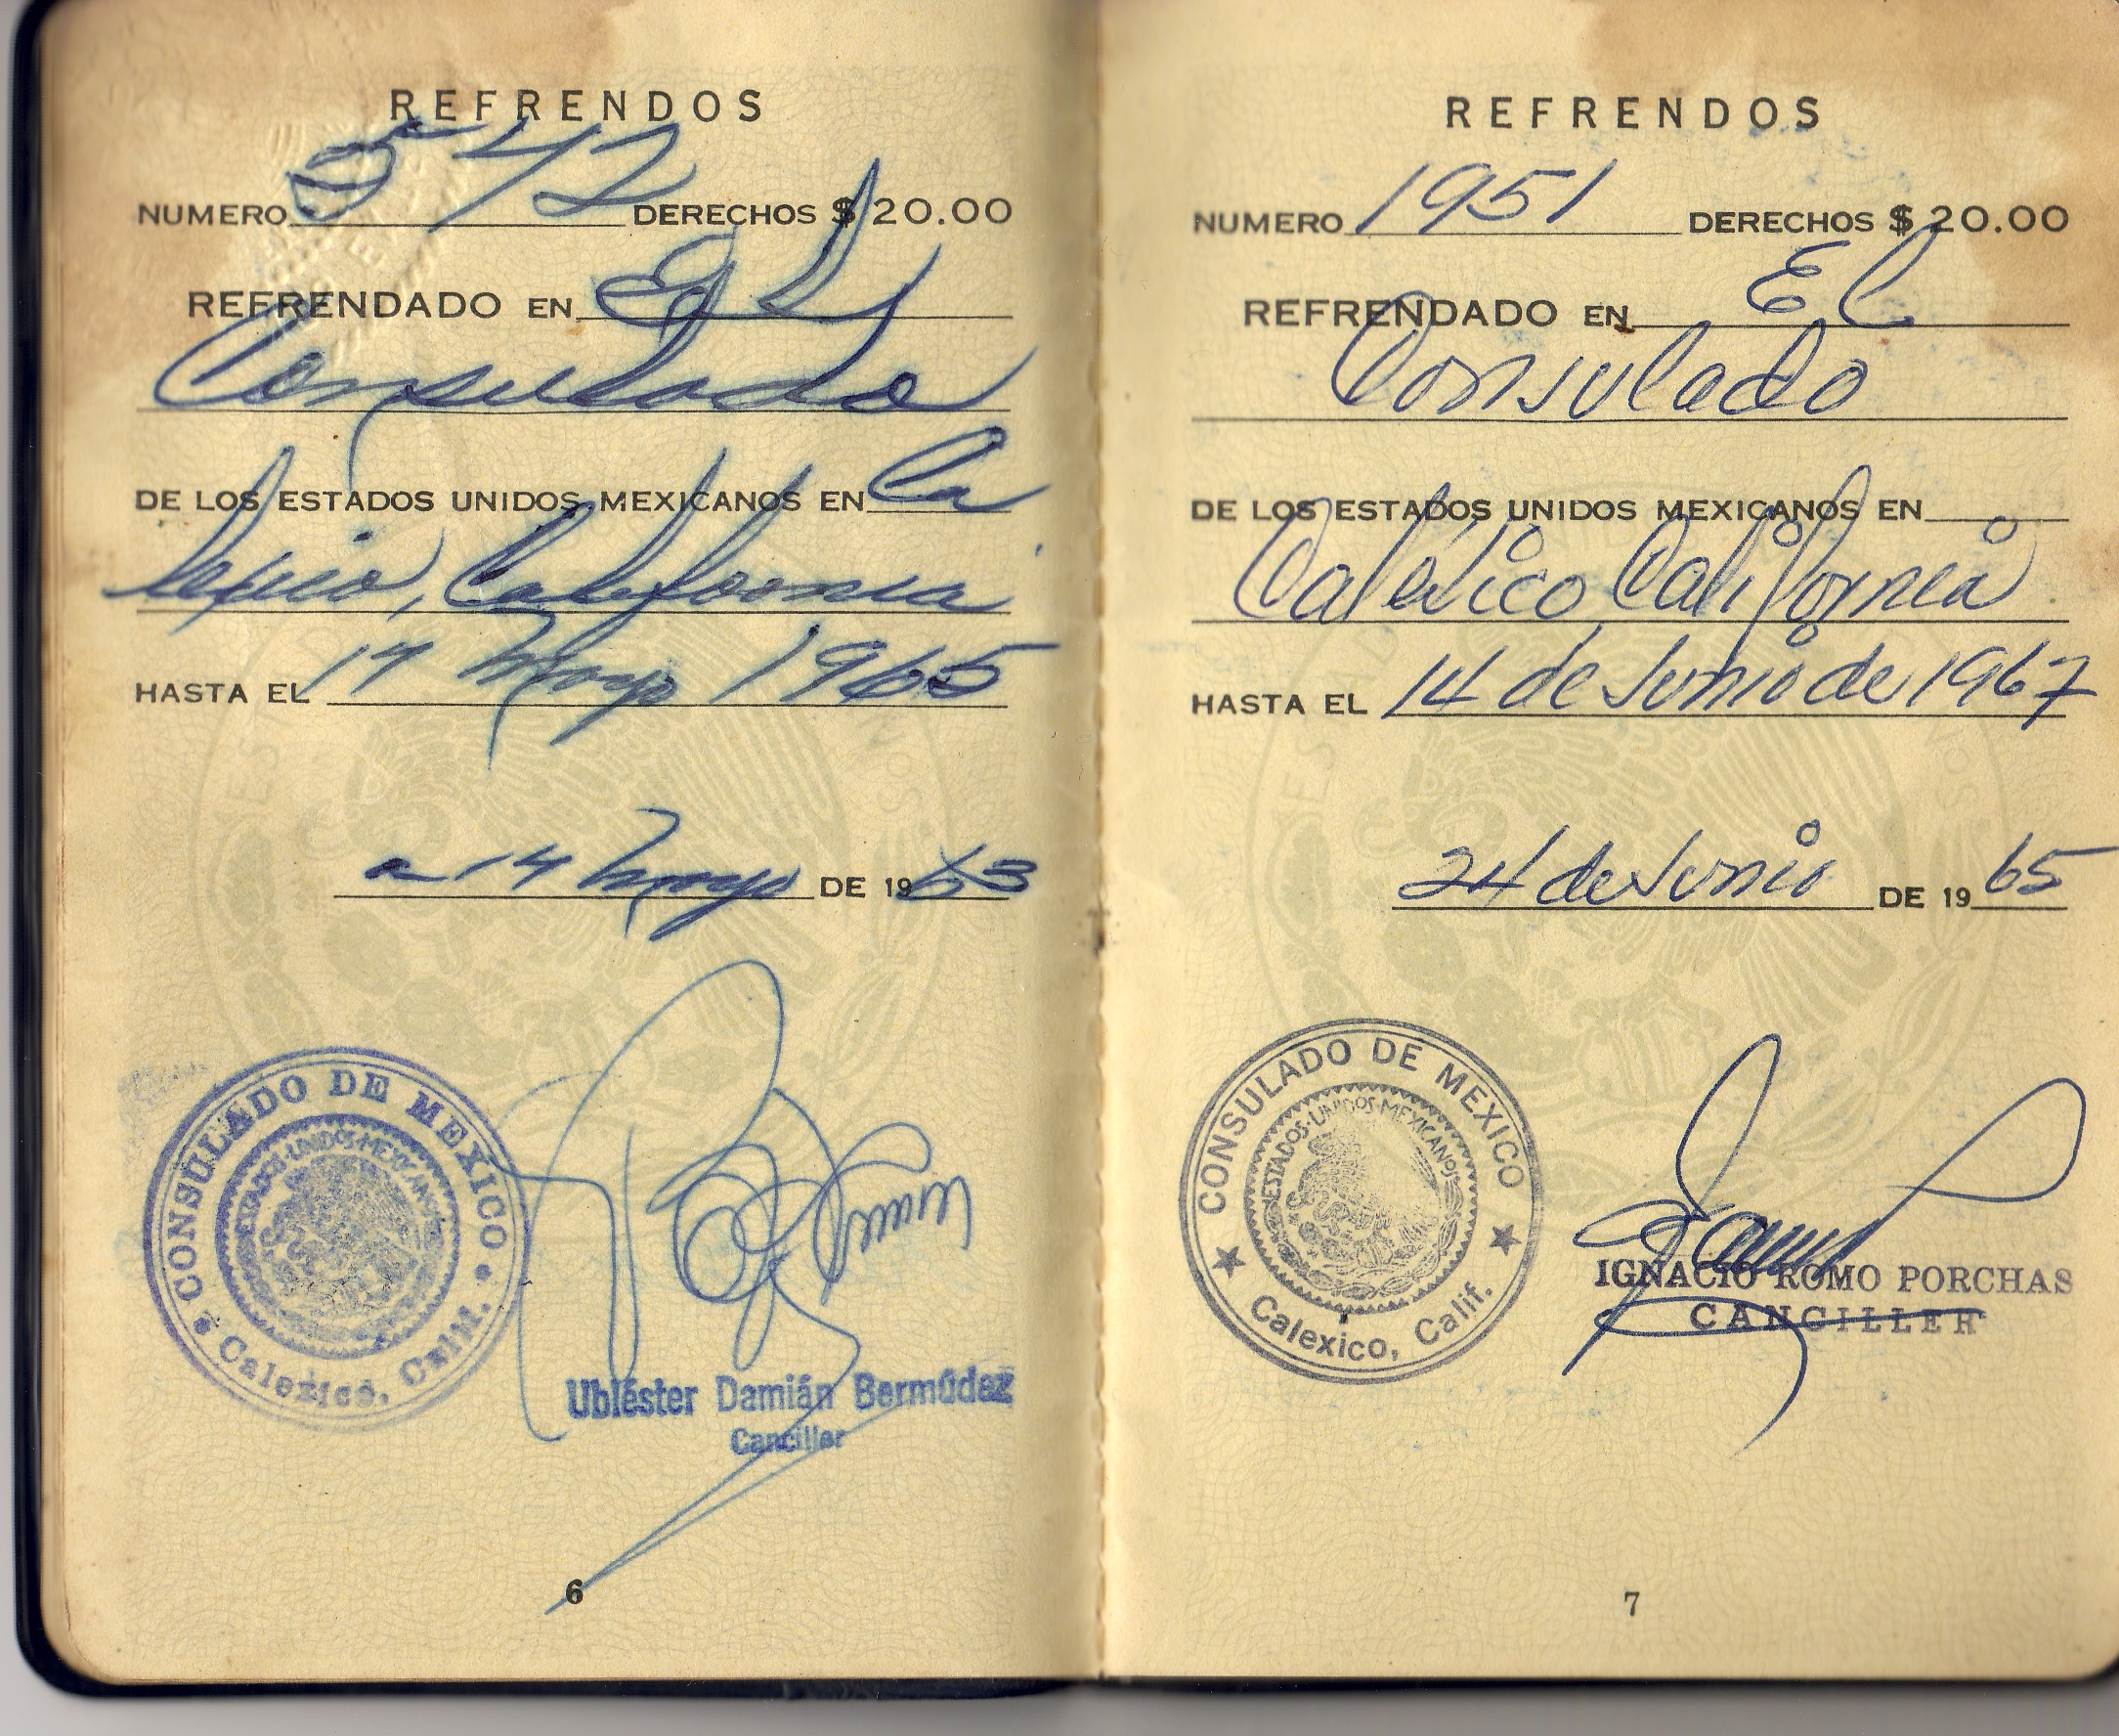 REFRENDOS
NUMERO 542 DERECHOS $ 20.00
REFRENDADO EN El
Consulado
DE LOS ESTADOS UNIDOS MEXICANOS EN Ca
lexico, California
HASTA EL 17 Mayo 1965
a 14 Mayo DE 1963
CONSULADO DE MEXICO
ESTADOS·UNIDOS·MEXICANOS
Calexico, Calif.
Ubléster Damián Bermúdez
Canciller
6
REFRENDOS
NUMERO 1951 DERECHOS $ 20.00
REFRENDADO EN El
Consulado
DE LOS ESTADOS UNIDOS MEXICANOS EN
Calexico California
HASTA EL 14 de Junio de 1967
24 de Junio DE 1965
CONSULADO DE MEXICO
ESTADOS·UNIDOS·MEXICANOS
Calexico, Calif.
IGNACIO ROMO PORCHAS
CANCILLER
7